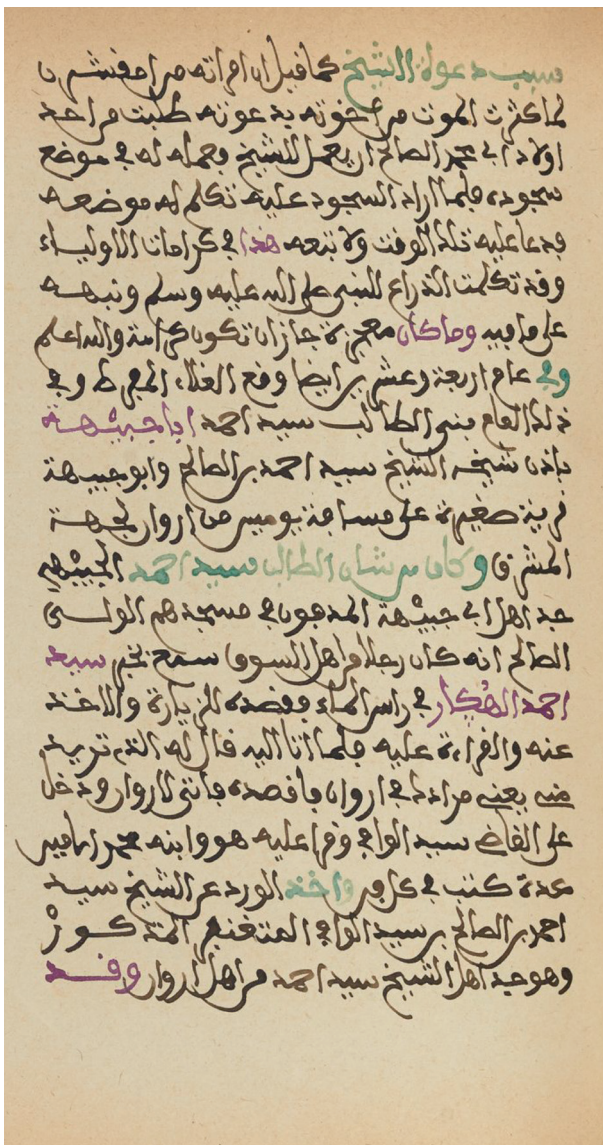 سبب دعوة الشيخ كما قيل ان امراته من احفنشر ن
لما كثرت الموت من اخوته بدعوته طلبت من احد
اولاد ابي محمد الصالح ان يعمل للشيخ فجعله له في موضع
سجوده فلما اراد السجود عليه تكلم له موضعه
فدعا عليه تلك الوقت ولا تبعه هذا في كرامات الاولياء
وقد تكلمت الذراع للنبي صلى الله عليه وسلم ونبهه
على ما فيه وما كان معجزة جاز ان تكون كرامة والله اعلم
وفي عام اربعة وعشرين ايضا وقع الغلاء المفرط وفي
ذلك العام بنى الطالب سيد احمد ابا جبيهة
باذن شيخه الشيخ سيد احمد بن الصالح وابو جبيهة
قرية صغيرة على مسافة يومين من اروان لجهة
المشرق وكان من شان الطالب سيد احمد الجبيهي
جد اهل ابي جبيهة المدفون في مسجدهم الولي
الصالح انه كان رجلا من اهل السوق سمع بخبر سيد
احمد الهكار في راس الماء فقصده للزيارة والاخذ
عنه والقراءة عليه فلما اتا اليه قال له الذي تريد
منى يعنى مرادك في اروان فاقصده فاتى لاروان ودخل
على القاضي سيد الوافي وقرا عليه هو وابنه محمد الامين
عدة كتب في كل فن واخذ الورد عن الشيخ سيد
احمد بن الصالح بن سيد الوافي المتقدم المذكور
وهو جد اهل الشيخ سيد احمد من اهل اروان وقد